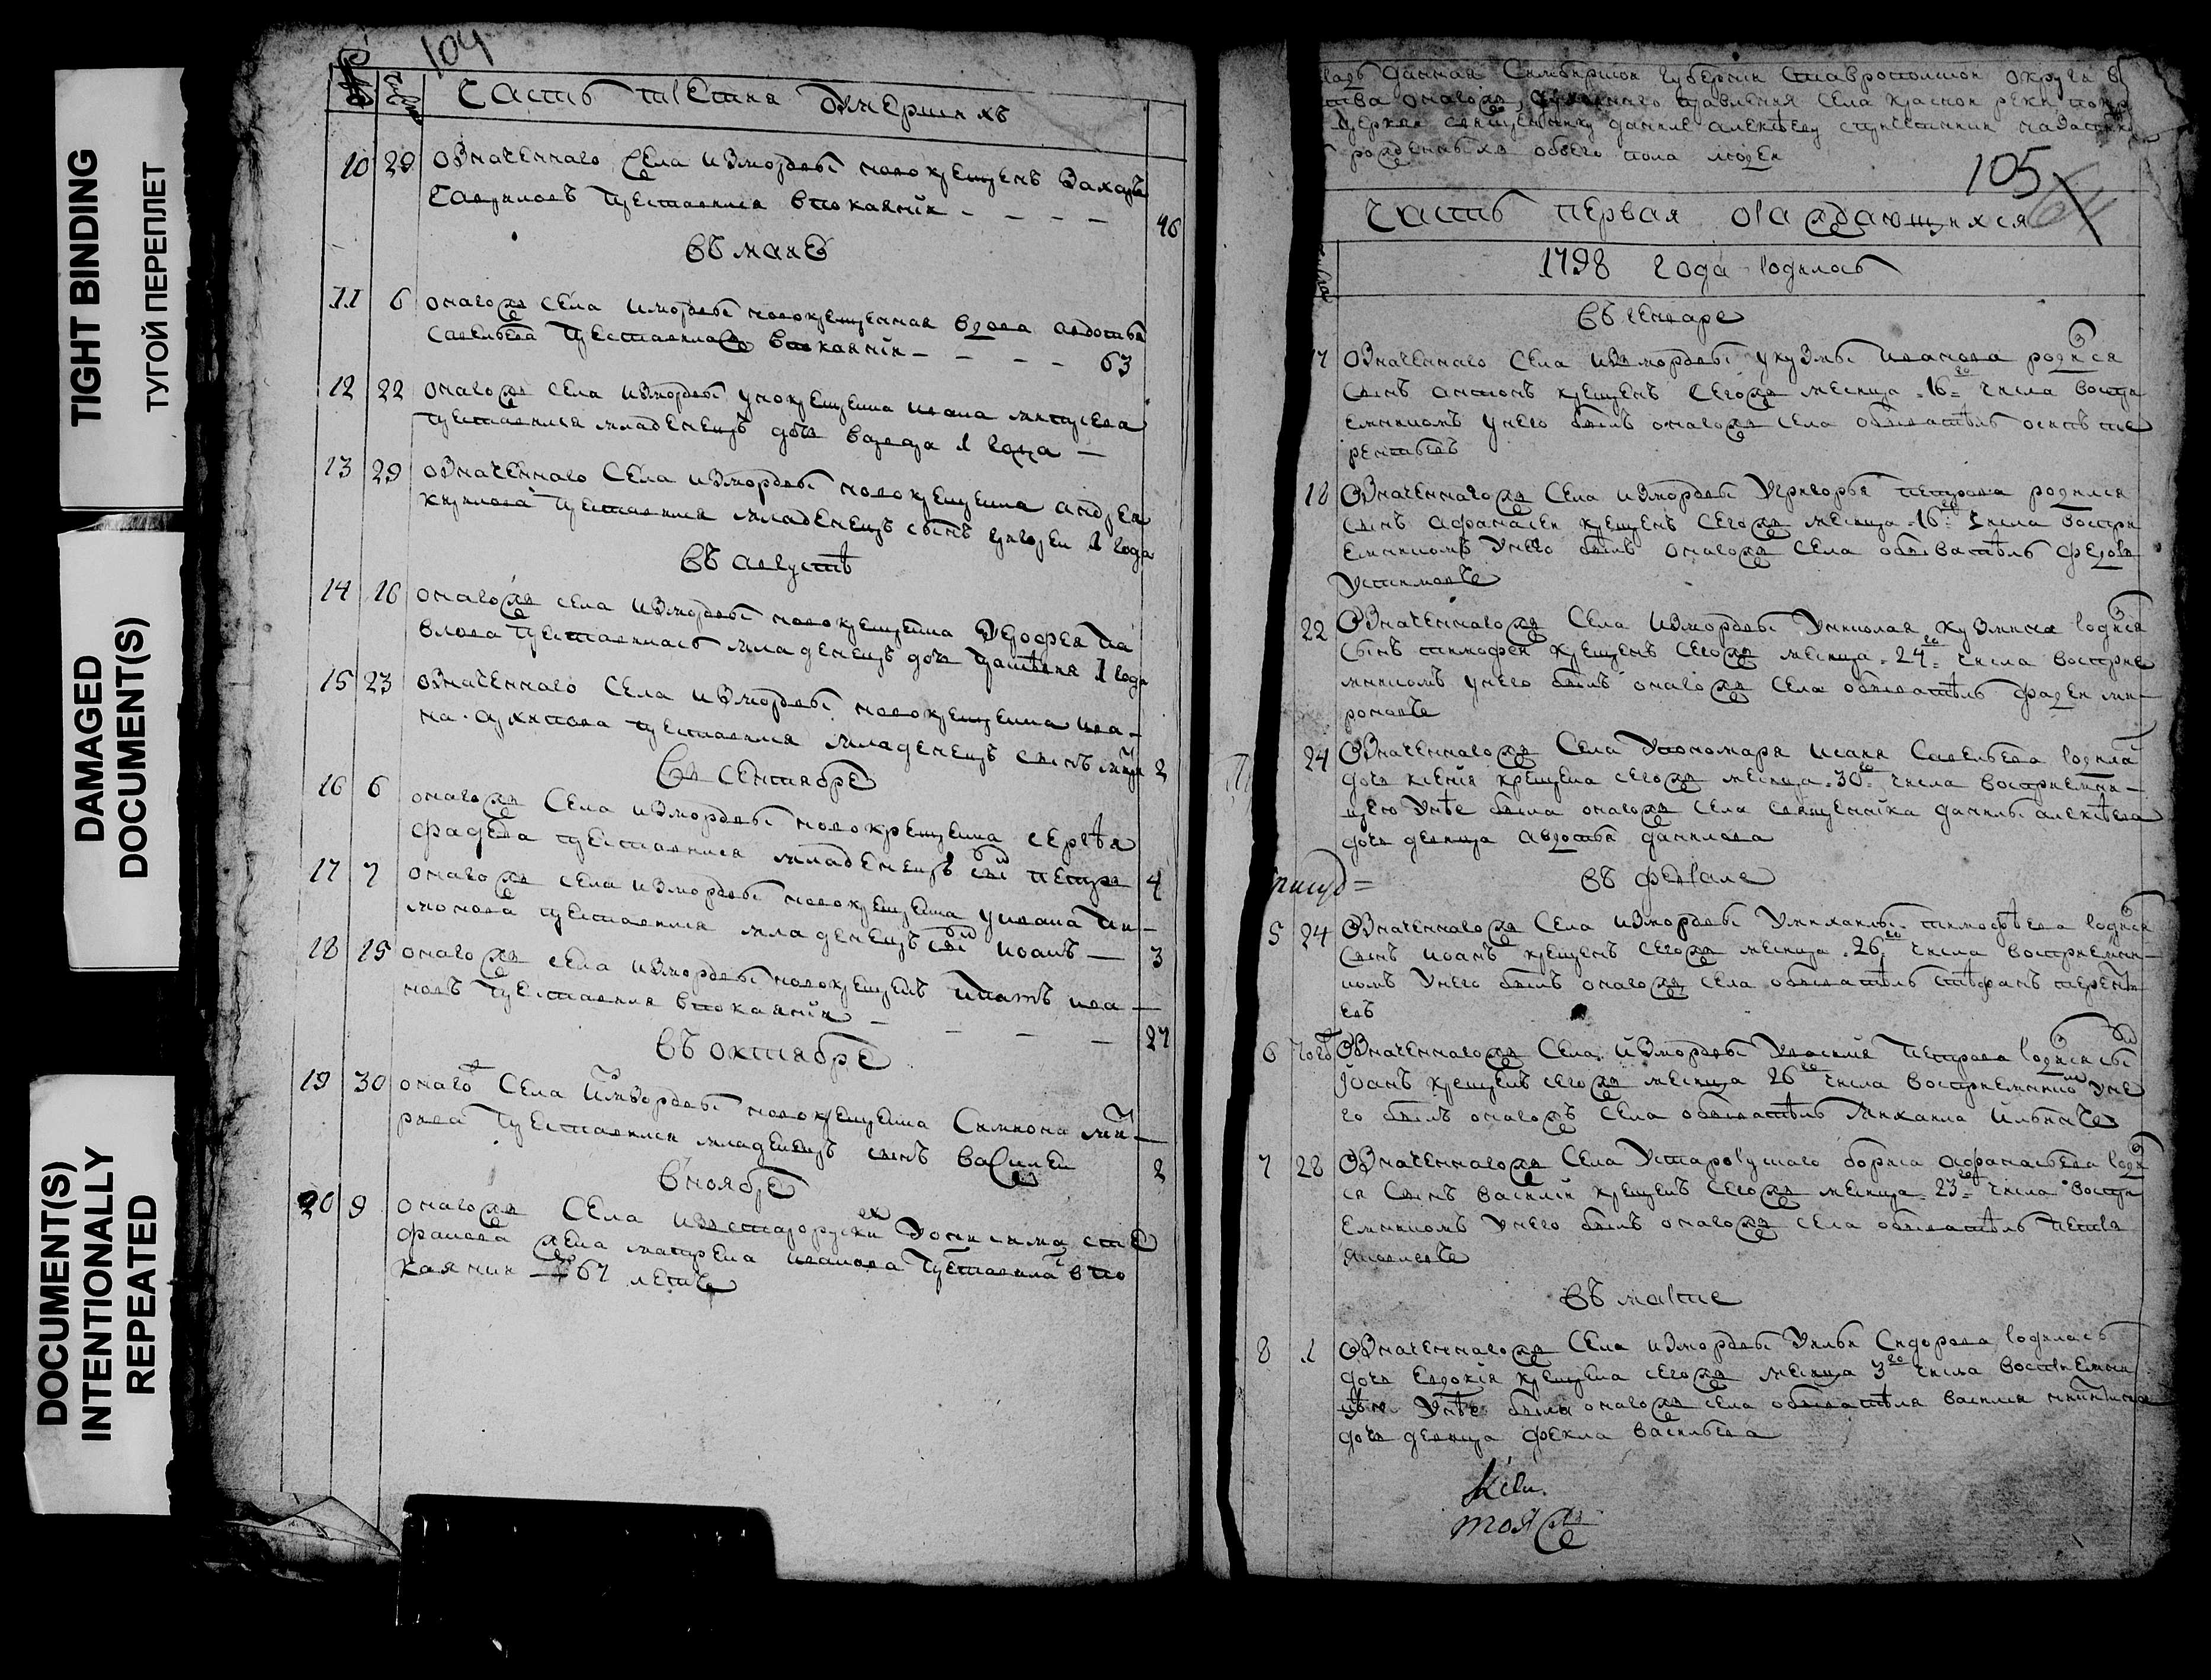 TIGHT BINDING
ТУГОЙ ПЕРЕПЛЕТ
DAMAGED
DOCUMENT(S)
DOCUMENT(S)
INTENTIONALLY
REPEATED
104
Часть третия умершихъ
10 29 означеннаго села измордвы новокрещенъ Захаръ
Гавриловъ преставился впокаянїи - - - - 46
въ маие
11 6 оного же села измордвы новокрещенная вдова авдотья
савельева преставилась впокаянїи - - - - 63
12 22 оного же села измордвы новокрещена ивана
преставился младенецъ дочь 1 года -
13 29 означеннаго села измордвы новокрещена андрея
кирилова преставился младенецъ сынъ григореи 1 года
въ августѣ
14 16 оного же села измордвы новокрещена Дорофея па
влова преставилась младенецъ дочь 1 года
15 23 означеннаго села измордвы новокрещена ива-
на архипова преставился младенецъ сынъ 2
въ сентябре
16 6 оного же села измордвы новокрещена сергѣя
фадеева преставился младенецъ сынъ петръ 4
17 7 оного же села измордвы новокрещена уивана
преставился младенецъ сынъ иоанъ - 3
18 15 оного же села измордвы новокрещенъ ипатъ ива-
новъ преставился впокаянїи - - - - 27
въ октябре
19 30 оного села измордвы новокрещена Симиона
преставился младенецъ сынъ василеи 2
в ноябре
20 9 оного же села изстаоруских Уонисима сте
фанова жена матрена иванова преставилась впо
каянии - 67 летъ
данная Симбирскои губернии ставрополскои округи
правления села краснои реки покр
церкви священнику даниле алексѣеву спричетники
рожденныхъ обоего пола людеи
105
64
Часть первая ораждающихся
1798 года родилось
въ генваре
означеннаго села измордвы укузмы иванова родися
сынъ антонъ крещенъ сегоже месяца 16го числа воспри
емникомъ унего былъ оного же села обывателъ осипъ те
рентьевъ
18 означеннаго же села измордвы Угригорья петрова родился
сынъ афанасеи крещенъ сегоже месяца 16го числа воспри
емникомъ унего былъ оного же села обыватель федоръ
Устимовъ
22 означеннаго же села измордвы Униколая кузмина родися
сынъ тимофеи крещенъ сегоже месяца 24го числа восприе
мникомъ унего былъ оного же села обыватѣль фадеи ми-
роновъ
24 означеннаго же села Упономаря исаия Савельева родила
дочь ксенїя крещена сегоже месяца 30го числа восприемни-
цею Унѣе была оного же села священїка данилы алексѣева
дочь девица Авдотья данилова
въ феврале
5 24 означеннаго же села измордвы Умихаилы тимофѣева родися
сынъ иоанъ крещенъ сегоже месяца 26го числа восприемни-
комъ Унего былъ оного же села обыватѣль стѣфанъ теренти
евъ
6 того означеннаго же села измордвы Увасилїя Петрова родися сынъ
Иоанъ крещенъ сегоже месяца 26го числа восприемникомъ уне
го былъ оного же села обыватѣль Михаила Ильинъ
7 28 означеннаго же села Устарорускаго бориса афанасьева роди
ся сынъ василїи крещенъ сегоже месяца 23го числа воспри
емникомъ Унего былъ оного же села обыватѣль петръ
яковлевъ
въ марте
8 1 означеннаго же села измордвы Уильи Сидорова родилась
дочь Евдокїя крещена сегоже месяца 3го числа восприемни
цею Унѣе была оного же села обыватѣля василия никитина
дочь девица фекла васильева
тоя же